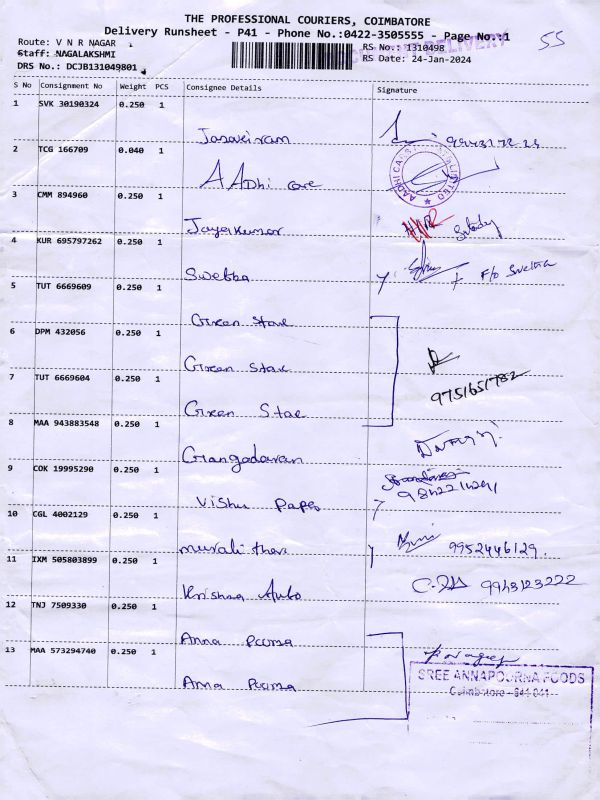 THE PROFESSIONAL COURIERS, COIMBATORE
Delivery Runsheet - P41 - Phone No.:0422-3505555 - Page No.:1
55
Route: V N R NAGAR
Staff: NAGALAKSHMI
DRS No.: DCJB131049801
RS No.: 1310498
RS Date: 24-Jan-2024
DELIVERY
S No Consignment No Weight PCS Consignee Details Signature
1 SVK 30190324 0.250 1
2 TCG 166709 0.040 1 AADhi care
3 CMM 894960 0.250 1 Jayakumar
4 KUR 695797262 0.250 1 Swebba F/o Swetha
5 TUT 6669609 0.250 1 Green Star
6 DPM 432056 0.250 1 Green Star
7 TUT 6669604 0.250 1 Green Star 9751651782
8 MAA 943883548 0.250 1 Gangadaran
9 COK 19995290 0.250 1 Vishu Paper
10 CGL 4002129 0.250 1 murali thara 9952446129
11 IXM 505803899 0.250 1 Krishna Auto 9943123222
12 TNJ 7509330 0.250 1 Anna Poorna
13 MAA 573294740 0.250 1 Anna Poorna
SREE ANNAPOORNA FOODS
Coimbatore - 641 041